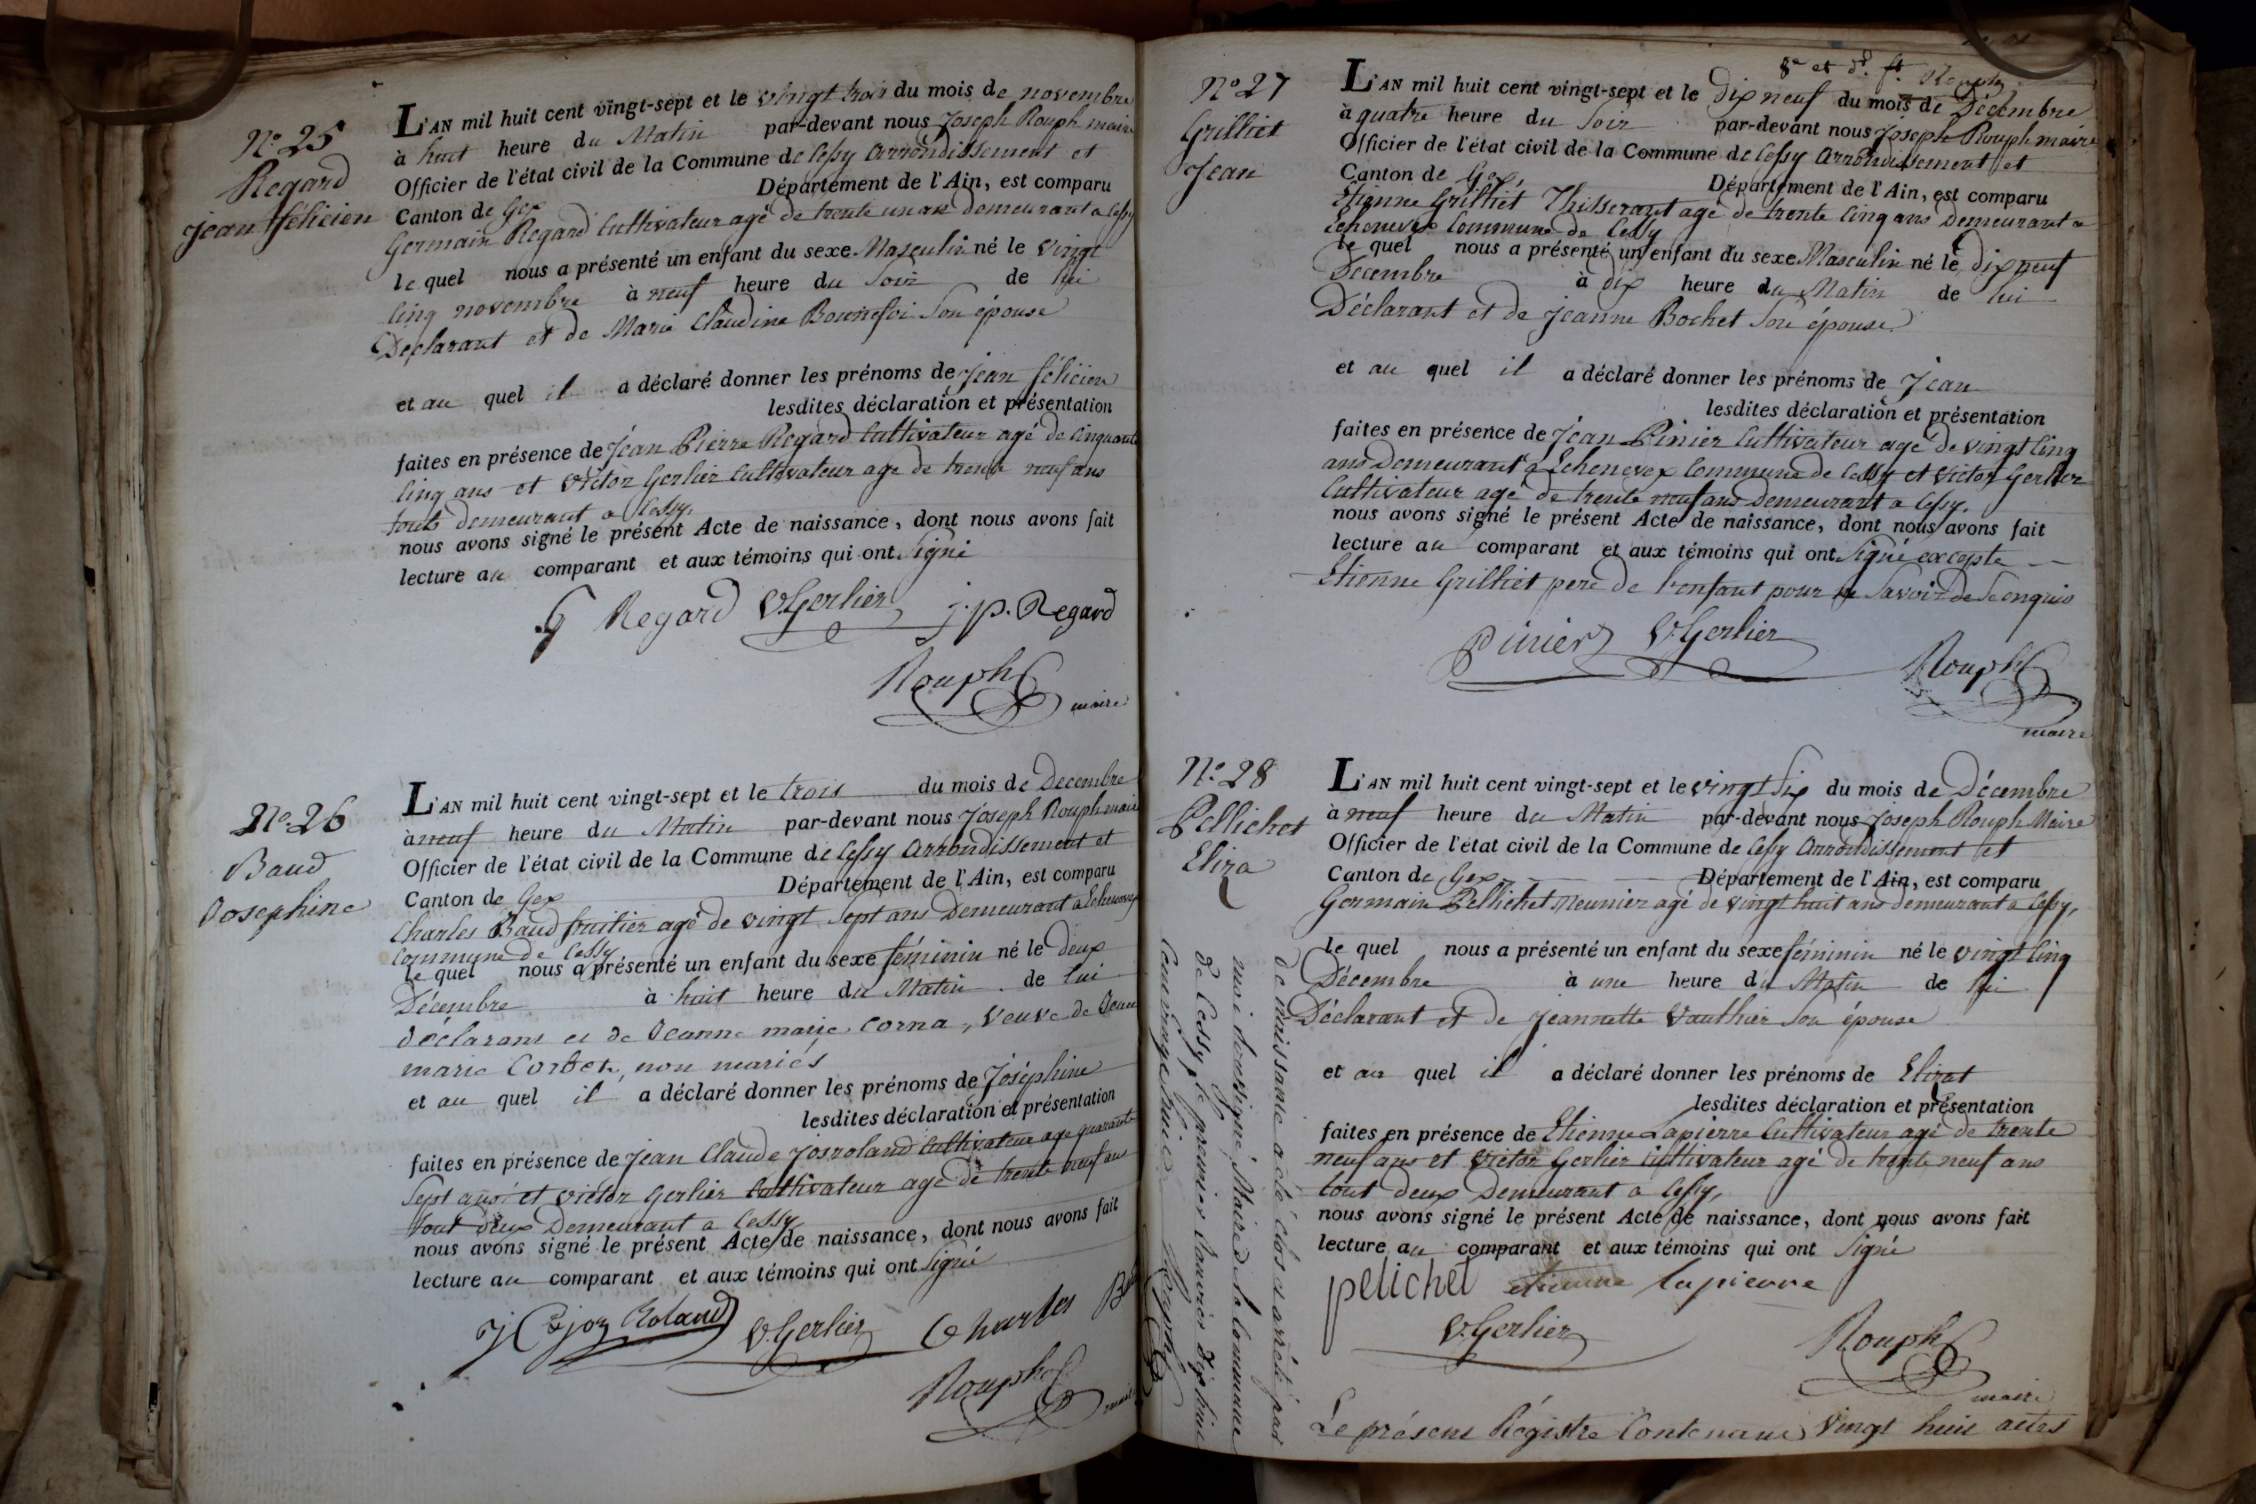 N.º 25
Regard
jean félicien
L'AN mil huit cent vingt-sept et le vingt trois du mois de novembre
à huit heure du Matin par-devant nous Joseph Rouph maire
Officier de l'état civil de la Commune de Cessy arrondissement et
Canton de Gex Département de l'Ain, est comparu
Germain Regard Cultivateur agé de trente un an demeurant a Cessy
le quel nous a présenté un enfant du sexe Masculin né le vingt
cinq novembre à neuf heure du Soir de lui
Déclarant et de Marie Claudine Bonnefoi Son épouse
et au quel il a déclaré donner les prénoms de jean félicien
lesdites déclaration et présentation
faites en présence de Jean Pierre Regard Cultivateur agé de Cinquante
Cinq ans et Victor Gerlier Cultivateur age de trente neuf ans
touts demeurant a Cessy.
nous avons signé le présent Acte de naissance, dont nous avons fait
lecture au comparant et aux témoins qui ont Signé
G Regard V.Gerlier j.p. Regard
Rouph
maire
N.º 26
Baud
Josephine
L'AN mil huit cent vingt-sept et le trois du mois de Decembre
à neuf heure du Matin par-devant nous Joseph Rouph maire
Officier de l'état civil de la Commune de Cessy Arrondissement et
Canton de Gex Département de l'Ain, est comparu
Charles Baud fruitier agé de vingt Sept ans Demeurant a Echenevex
Commune de Cessy
le quel nous a présenté un enfant du sexe féminin né le deux
Décembre à huit heure du Matin de lui
déclarant et de Jeanne marie Corna, veuve de Jean
marie Corbet, non mariés
et au quel il a déclaré donner les prénoms de Joséphine
lesdites déclaration et présentation
faites en présence de Jean Claude Josroland Cultivateur age quarante
Sept ans et Victor Gerlier Cultivateur agé de trente neuf ans
tout deux Demeurant a Cessy
nous avons signé le présent Acte de naissance, dont nous avons fait
lecture au comparant et aux témoins qui ont Signé
V.Gerlier Charles
Rouph
N.º 27
Grilliet
Jean
L'AN mil huit cent vingt-sept et le Dix neuf du mois de Décembre
à quatre heure du Soir par-devant nous Joseph Rouph maire
Officier de l'état civil de la Commune de Cessy Arrondissement et
Canton de Gex, Département de l'Ain, est comparu
Etienne Grilliet Thisserant agé de trente Cinq ans Demeurant a
Echenevex Commune de Cessy
le quel nous a présenté un enfant du sexe Masculin né le dix neuf
Décembre à dix heure du Matin de lui
Déclarant et de Jeanne Bochet Son épouse
et au quel il a déclaré donner les prénoms de Jean
lesdites déclaration et présentation
faites en présence de Jean Pinier Cultivateur agé de vingt Cinq
ans Demeurant a Echenevex Commune de Cessy et Victor Gerlier
Cultivateur agé de trente neuf ans Demeurant a Cessy.
nous avons signé le présent Acte de naissance, dont nous avons fait
lecture au comparant et aux témoins qui ont Signé excepte
Etienne Grilliet pere de l'enfant pour ne Savoir de Ce enquis
Pinier V.Gerlier
Rouph
maire
N.º 28
Pellichet
Eliza
L'AN mil huit cent vingt-sept et le vingt Six du mois de Décembre
à neuf heure du Matin par-devant nous Joseph Rouph Maire
Officier de l'état civil de la Commune de Cessy Arrondissement et
Canton de Gex Département de l'Ain, est comparu
Germain Pellichet Meunier agé de vingt huit ans demeurant a Cessy,
le quel nous a présenté un enfant du sexe féminin né le vingt Cinq
Décembre à une heure du Matin de lui
Déclarant et de Jeannette Vauthier Son épouse
et au quel il a déclaré donner les prénoms de Elizat
lesdites déclaration et présentation
faites en présence de Etienne Lapierre Cultivateur agé de trente
neuf ans et Victor Gerlier Cultivateur agé de trente neuf ans
tout deux Demeurant a Cessy,
nous avons signé le présent Acte de naissance, dont nous avons fait
lecture au comparant et aux témoins qui ont Signé
pelichet etienne lapierre
V.Gerlier
Rouph
maire
Le présent Régistre Contenant vingt huit actes
de naissance a été clos & arrêté par
moi soussigné, Maire de la Commune
de Cessy, le premier Janvier dix huit
cent vingt huit
Rouph